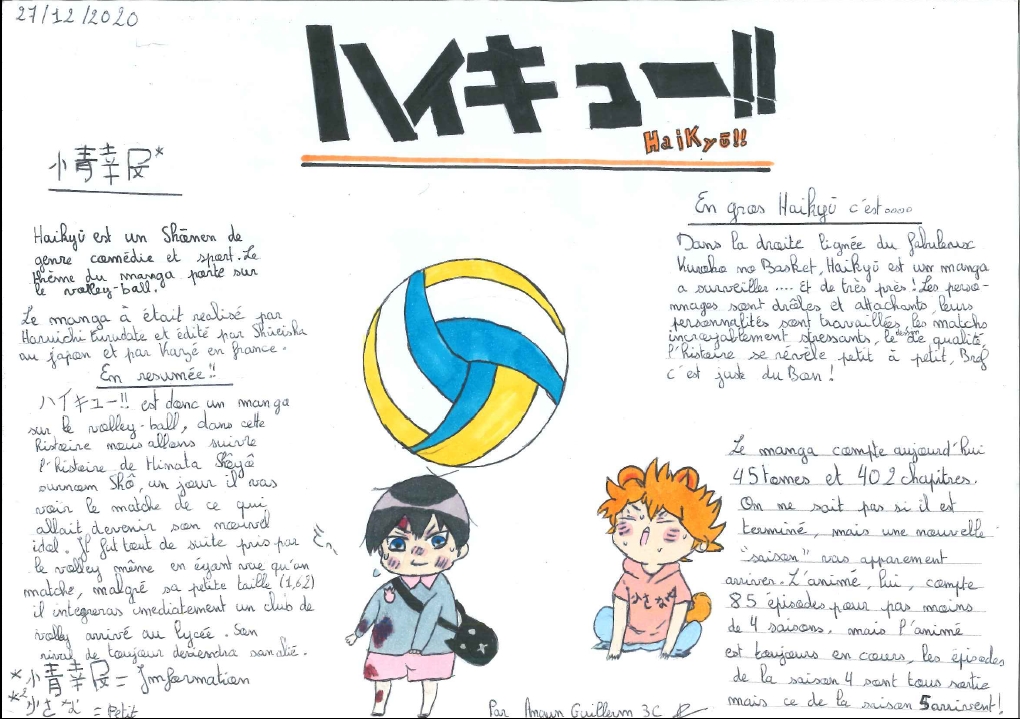 27/12/2020
ハイキュー!!
HaiKyū!!
Haikyū est un Shōnen de
genre comédie et sport. Le
thème du manga porte sur
le volley-ball.
Le manga à était realisé par
Haruichi Furudate et édité par Shūeisha
au japon et par Kazé en france.
En resumée!!
ハイキュー!! est donc un manga
sur le volley-ball, dans cette
histoire nous allons suivre
l'histoire de Hinata Shōyō
surnom Shô, un jour il vas
voir le matche de ce qui
allait devenir son nouvel
idol. Il fut tout de suite pris par
le volley même en éyant vue qu'un
matche, malgré sa petite taille (1,62)
il intègreras imediatement un club de
volley arrivé au lyceé. Son
rival de toujour deviendra son alié.
= Information
= Petit
En gros Haikyū c'est....
Dans la droite lignée du fabuleux
Kuroko no Basket, Haikyū est un manga
a surveiller .... et de très près! Les perso-
nnages sont drôles et attachants, leurs
personnalités sont travaillées, les matchs
incroyablement stressants, le design de qualité,
l'histoire se révèle petit à petit, Bref
c'est juste du Bon!
Le manga compte aujourd'hui
45 tomes et 402 chapitres.
On ne sait pas si il est
terminé, mais une nouvelle
"saison" vas apparement
arriver. L'animé, lui, compte
85 épisodes pour pas moins
de 4 saisons, mais l'animé
est toujours en cours, les épisodes
de la saison 4 sont tous sortie
mais ce de la saison 5 arrivent!
小さな
Par Guillerm 3C